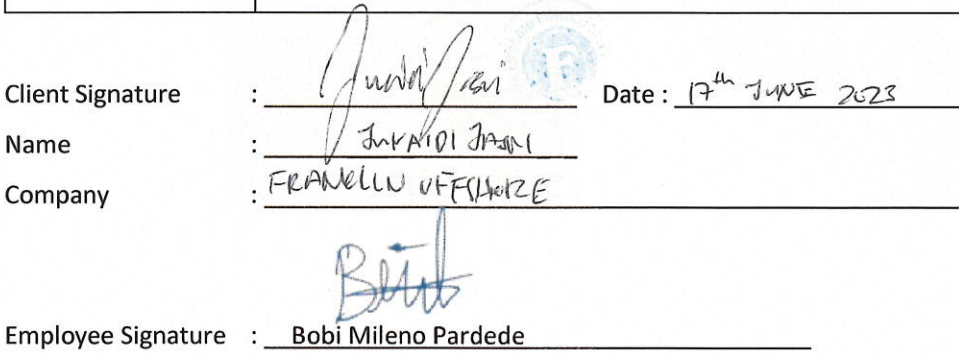 Client Signature : Junaidi Jasni Date : 17th JUNE 2023
Name : JUNAIDI JASNI
Company : FRANKLIN OFFSHORE
Employee Signature : Bobi Mileno Pardede